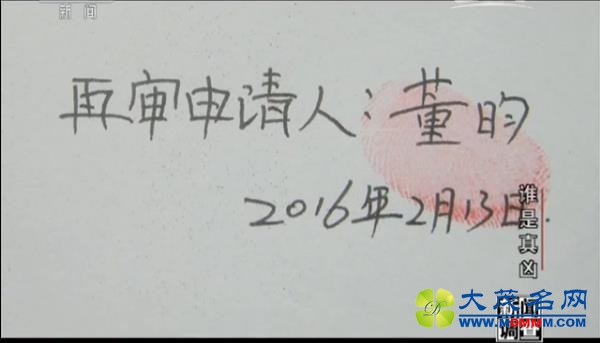 新闻
再审申请人：董昀
2016年2月13日.
谁是真凶
新闻
调查
大茂名网
DMMNM.COM